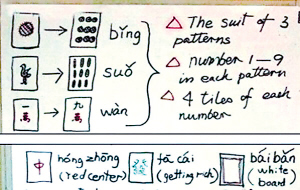 bǐng
suǒ
一 萬 九 萬 wàn
The suit of 3
patterns
number 1-9
in each pattern
4 tiles of each
number
中 hóng zhōng
(red center)
fā cái
(getting rich)
bái bǎn
(white
board)